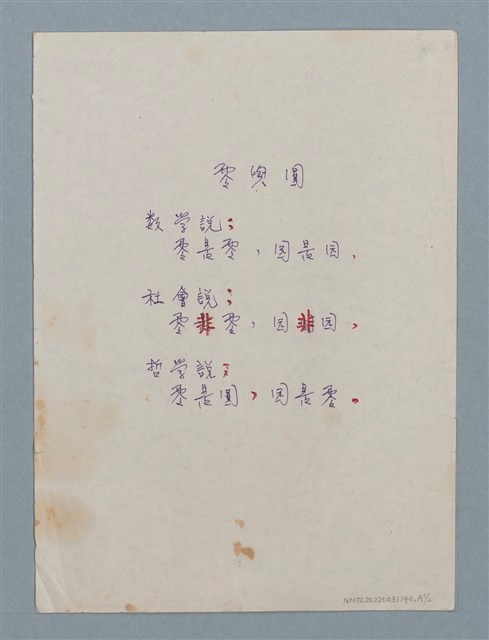 零與圓
数学說；
零是零，囩是囩，
社會說；
零非零，囩非囩，
哲学說；
零是圓，囩是零。
NMTL20220031140,A½